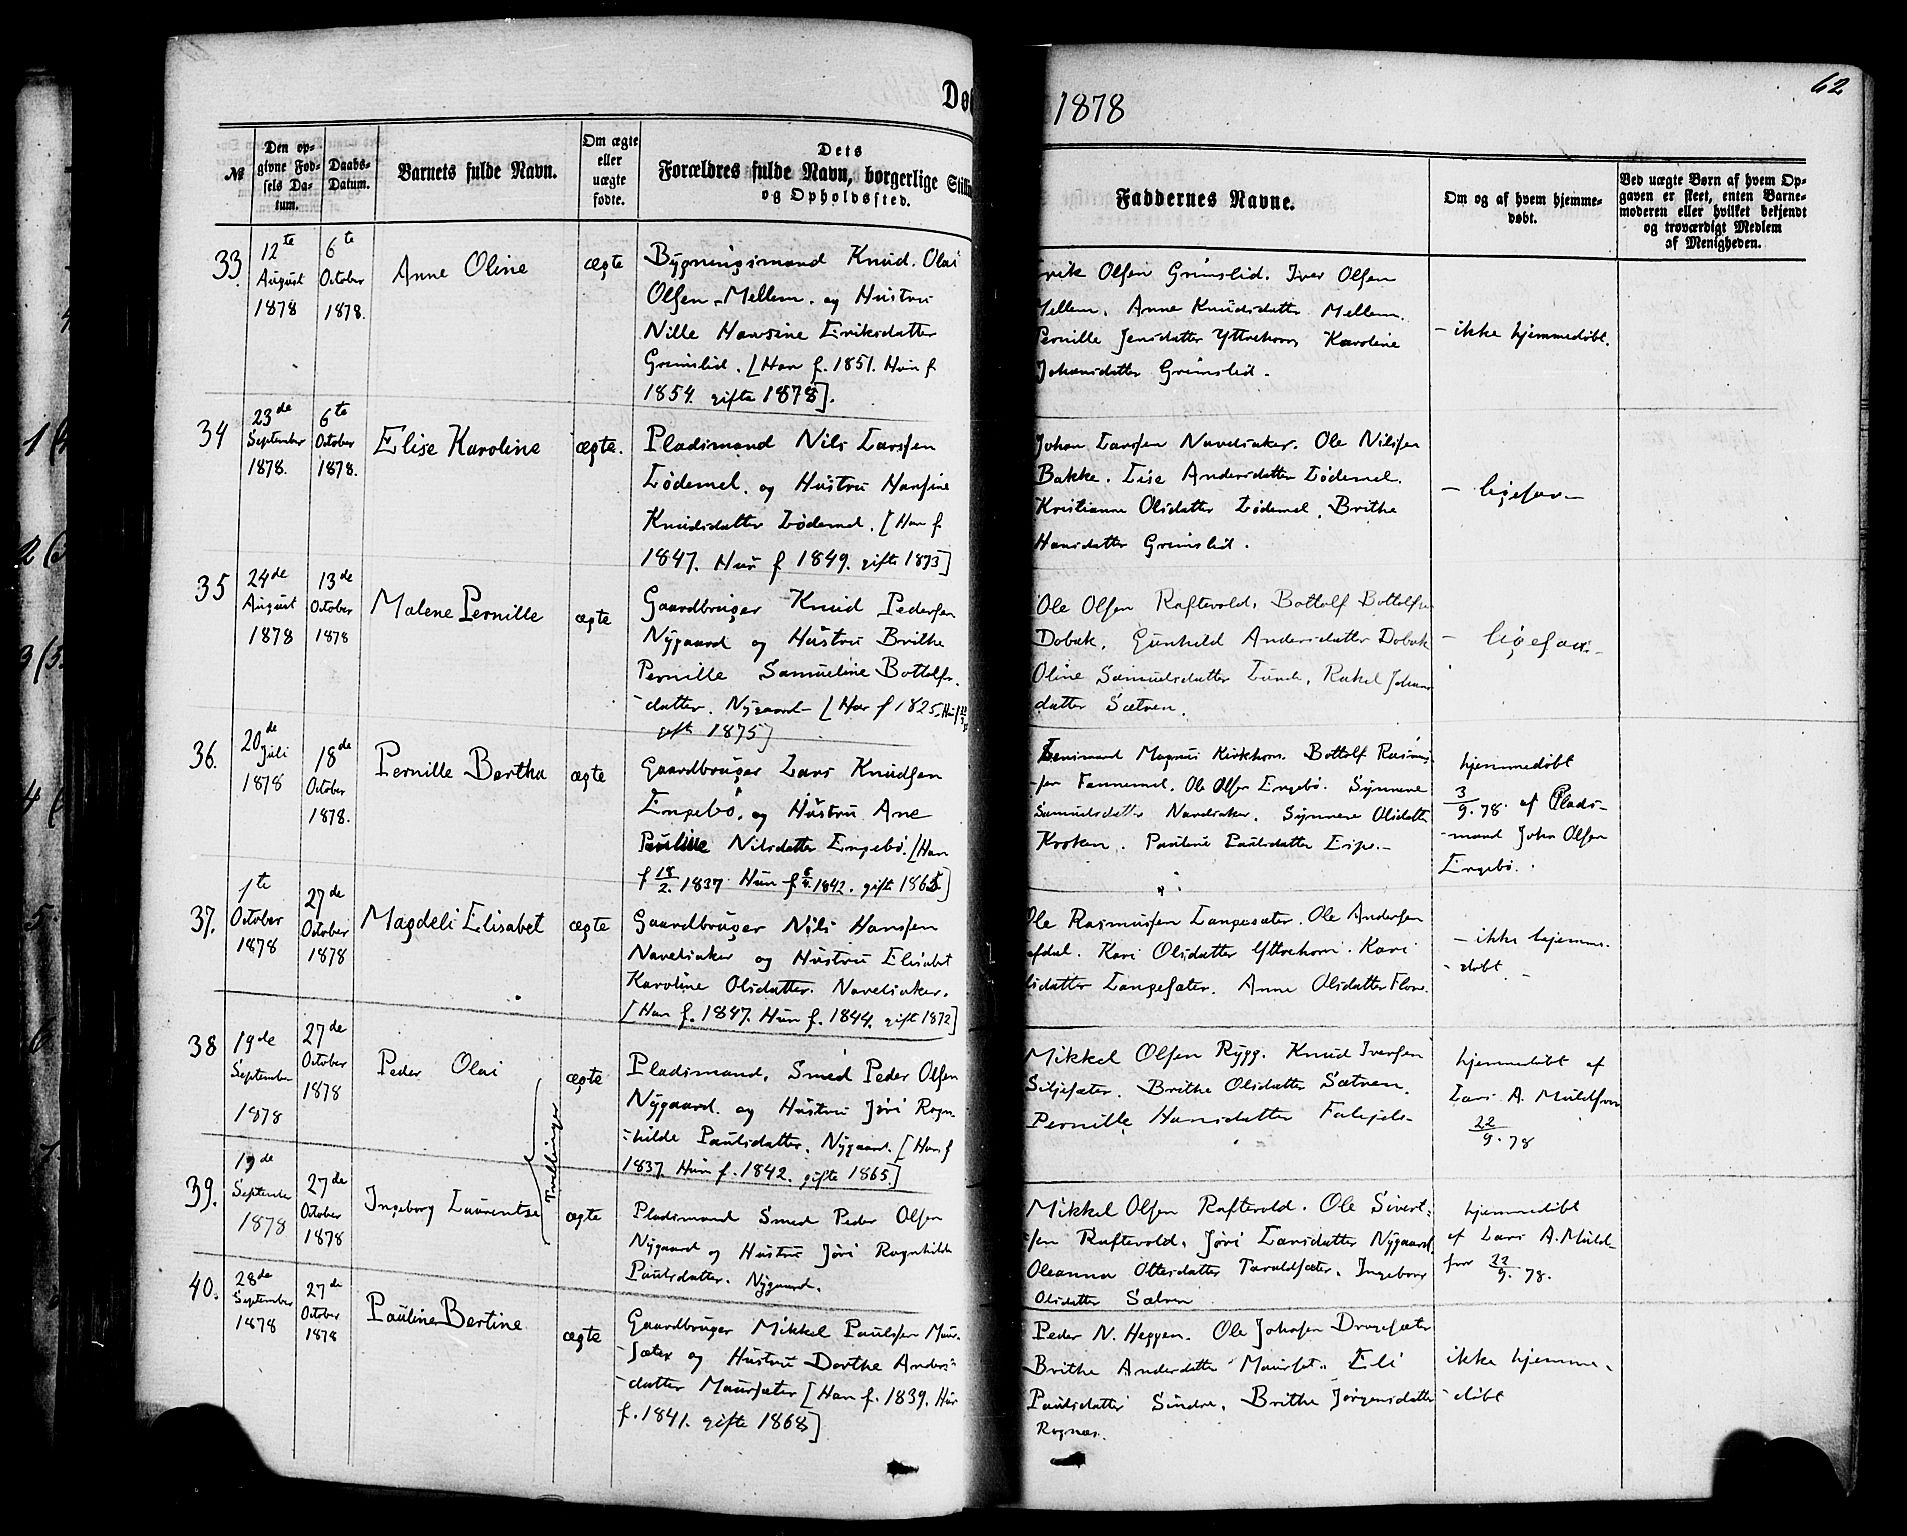 Dø
1878
62
№
Den op-
givne Fød-
sels Da-
tum.
Daabs-
Datum.
Barnets fulde Navn.
Om ægte
eller
uægte
fødte.
Dets
Forældres fulde Navn, borgerlige Stilli
og Opholdssted.
Faddernes Navne.
Om og af hvem hjemme-
døbt.
Ved uægte Børn af hvem Op-
gaven er skeet, enten Barne-
moderen eller hvilket bekjendt
og troværdigt Medlem
af Menigheden.
33.
12te
August
1878
6te
October
1878.
Anne Oline
ægte
Bygningsmand Knud. Olai
Olsen Mellem. og Hustru
Nille Hansine Eriksdatter
Grimslid. [Han f. 1851. Hun f
1854 gifte 1878].
Erik Olsen Grimslid. Iver Olsen
Mellem. Anne Knudsdatter Mellem.
Pernille Jensdatter Yttrehorn Karoline
Johansdatter Grimslid.
- ikke hjemmedøbt.
34
23de
September
1878.
6te
October
1878.
Elise Karoline
ægte.
Pladsmand Nils Larssen
Lødemel. og Hustru Hansine
Knudsdatter Lødemel. [Han f
1847. Hun f 1849. gifte 1873]
Johan Larssen Navelsaker. Ole Nilssen
Bakke. Lise Andersdatter Lødemel.
Kristianne Olsdatter Lødemel. Brithe
Hansdatter Grimslid.
- ligesaa -
35
24de
August
1878
13de
October
1878
Malene Pernille
ægte
Gaardbruger Knud Pedersen
Nygaard og Hustru Brithe
Pernille Samueline Bottolfs-
-datter. Nygaard [Han f 1825. Hun f
gift 1875]
Ole Olsen Raftevold. Bottolf Bottolfsen
Dobak. Gunhild Andersdatter Dobak
Oline Samuelsdatter Lunde. Rakel Johans
datter Sætren.
- ligesaa -
36.
20de
Juli
1878
18de
October
1878.
Pernille Bertha
ægte
Gaardbruger Lars Knudsen
Engebø. og Hustru Ane
Pauline Nilsdatter Engebø. [Han
f 18/2. 1837 Hun f 8/4. 1842. gifte 1865]
Lensmand Magnus Kirkhorn. Bottolf Rasmus-
-sen Fannemel. Ole Olsen Engebø. Synneve
Samuelsdatter Navelsaker. Synneve Olsdatter
Kroken. Pauline Paulsdatter Eise.
hjemmedøbt
3/9. 78. af Plads-
-mand John Olsen
Engebø.
37.
1te
October
1878
27de
October
1878
Magdeli Elisabet
ægte
Gaardbruger Nils Hansen
Navelsaker og Hustru Elisabet
Karoline Olsdatter. Navelsaker.
[Han f. 1847. Hun f. 1844. gift 1872]
Ole Rasmussen Langesæter. Ole Andersen
Kari Olsdatter Yttrehorn. Kari
Olsdatter Langesæter. Anne Olsdatter Flore.
- ikke hjemme-
-døbt -
38
19de
September
1878
27de
October
1878
Peder Olai
Tvillinger
ægte
Pladsmand. Smed Peder Olsen
Nygaard. og Hustru Jøri Ragn-
-hilde Paulsdatter. Nygaard. [Han f
1837. Hun f. 1842. gifte 1865]
Mikkel Olsen Rygg. Knud Iversen
Siljesæter. Brithe Olsdatter Sætren.
Pernille Hansdatter
hjemmedøbt af
Lars A. Muldsvor
22/9. 78
39.
19de
September
1878
27de
October
1878
Ingeborg Laurentse
ægte
Pladsmand Smed Peder Olsen
Nygaard og Hustru Jøri Ragnhilde
Paulsdatter. Nygaard.
Mikkel Olsen Raftevold. Ole Sivert-
-sen Raftevold. Jøri Larsdatter Nygaard
Oleanna Ottesdatter Taraldsæter. Ingeborg
Olsdatter Sætren
hjemmedøbt
af Lars A. Muld-
svor 22/9. 78.
40.
28de
September
1878
27de
October
1878
Pauline Bertine
ægte
Gaardbruger Mikkel Paulsen Maur-
-sæter og Hustru Dorthe Anders-
-datter Maursæter [Han f. 1839. Hun
f. 1841. gifte 1868]
Peder N. Heggen. Ole Johnsen Dragesæter
Brithe Andersdatter Maurset. Eli
Paulsdatter Sindre. Brithe Jørgensdatter
Rognes.
ikke hjemme-
-døbt